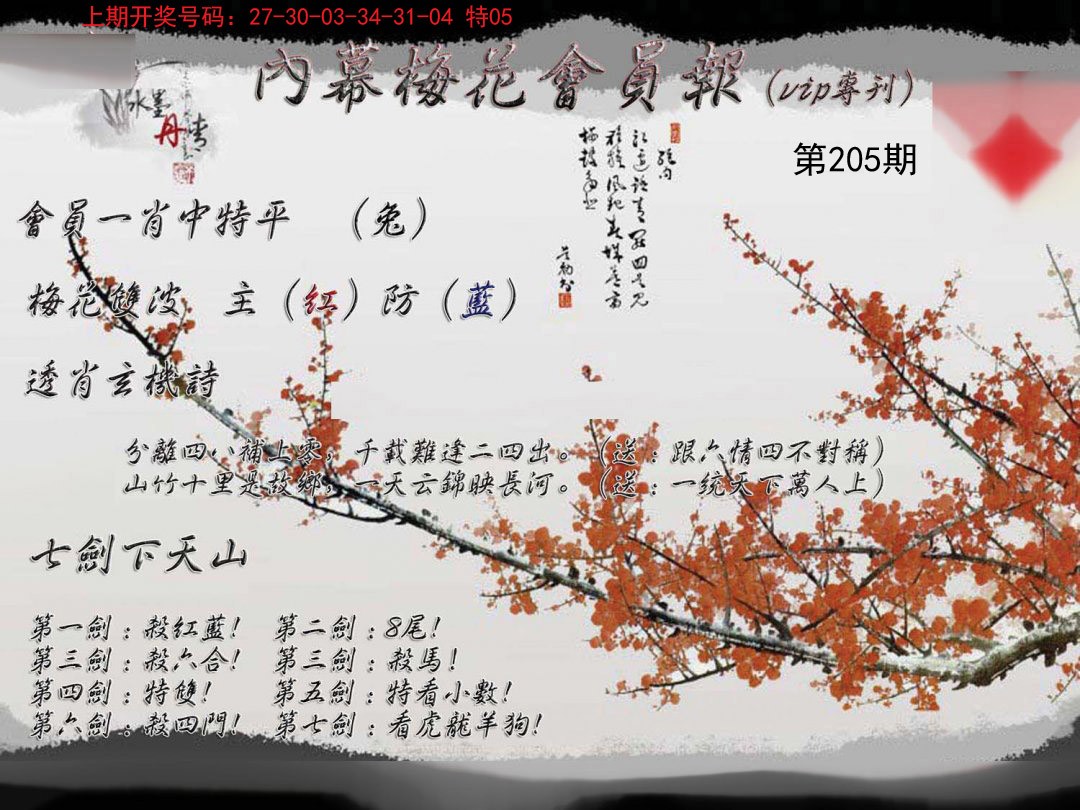 上期开奖号码：27-30-03-34-31-04 特05
內幕梅花會員報（vip專刊）
水墨
丹青
第205期
會員一肖中特平 （兔）
梅花雙波 主（紅）防（藍）
透肖玄機詩
分離四八補上零，千載難逢二四出。（送：跟六情四不對稱）
山竹十里是故鄉，一天云錦映長河。（送：一统天下萬人上）
七劍下天山
第一劍：殺紅藍！ 第二劍：8尾！
第三劍：殺六合！ 第三劍：殺馬！
第四劍：特雙！ 第五劍：特看小數！
第六劍：殺四門！ 第七劍：看虎龍羊狗！